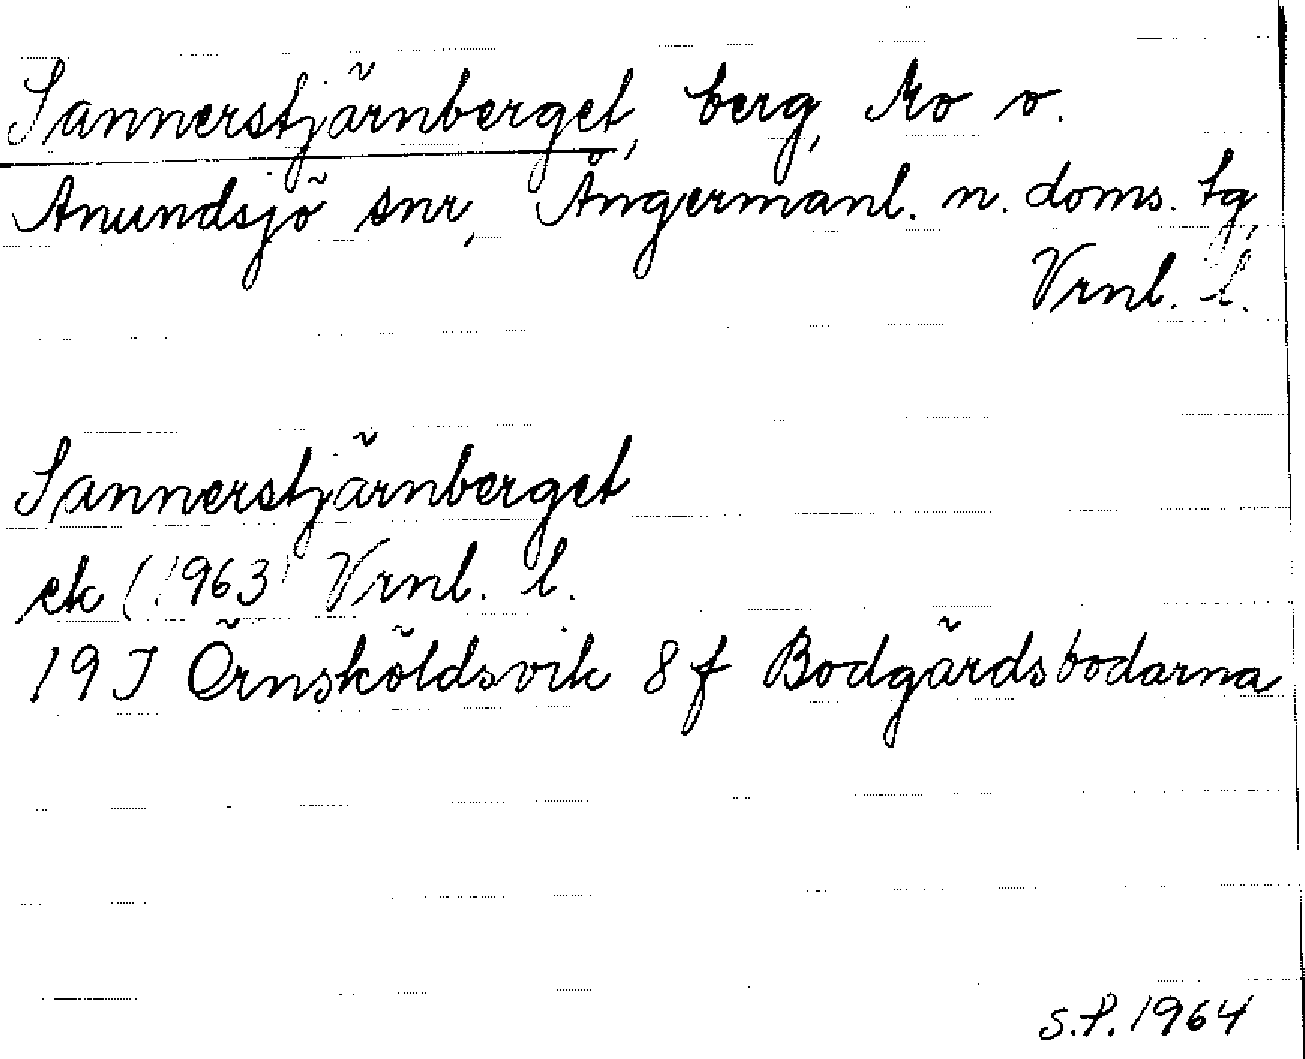 Sannerstjärnberget, berg, Mo o.
Anundsjö snr, Ångermanl. n. doms. tg,
Vrnl. l.
Sannerstjärnberget
ek (1963) Vrnl. l.
19J Örnsköldsvik 8f Bodgårdsbodarna
S.P. 1964